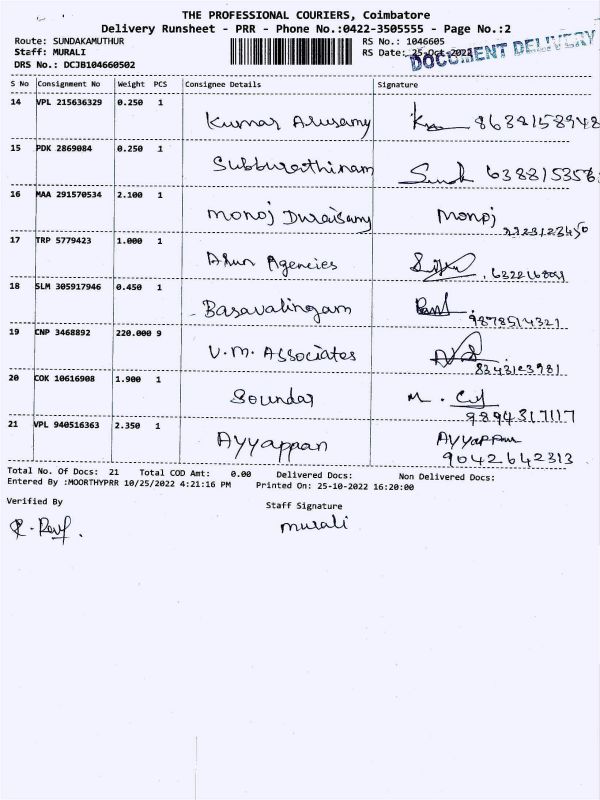 THE PROFESSIONAL COURIERS, Coimbatore
Delivery Runsheet - PRR - Phone No.:0422-3505555 - Page No.:2
Route: SUNDAKAMUTHUR
Staff: MURALI
DRS No.: DCJB104660502
RS No.: 1046605
RS Date: 25-Oct-2022
DOCUMENT DELIVERY
S No Consignment No Weight PCS Consignee Details Signature
14 VPL 215636329 0.250 1 Kumar Arusamy
15 PDK 2869084 0.250 1 Subburathinam
16 MAA 291570534 2.100 1 Monoj Duraisamy Monoj
17 TRP 5779423 1.000 1 Arun Agencies
18 SLM 305917946 0.450 1 Basavalingam 9878514321
19 CNP 3468892 220.000 9 V.M. Associates
20 COK 10616908 1.900 1 Soundar 9894317117
21 VPL 940516363 2.350 1 Ayyappan Ayyappan
9042642313
Total No. Of Docs: 21 Total COD Amt: 0.00 Delivered Docs: Non Delivered Docs:
Entered By :MOORTHYPRR 10/25/2022 4:21:16 PM Printed On: 25-10-2022 16:20:00
Verified By Staff Signature
murali